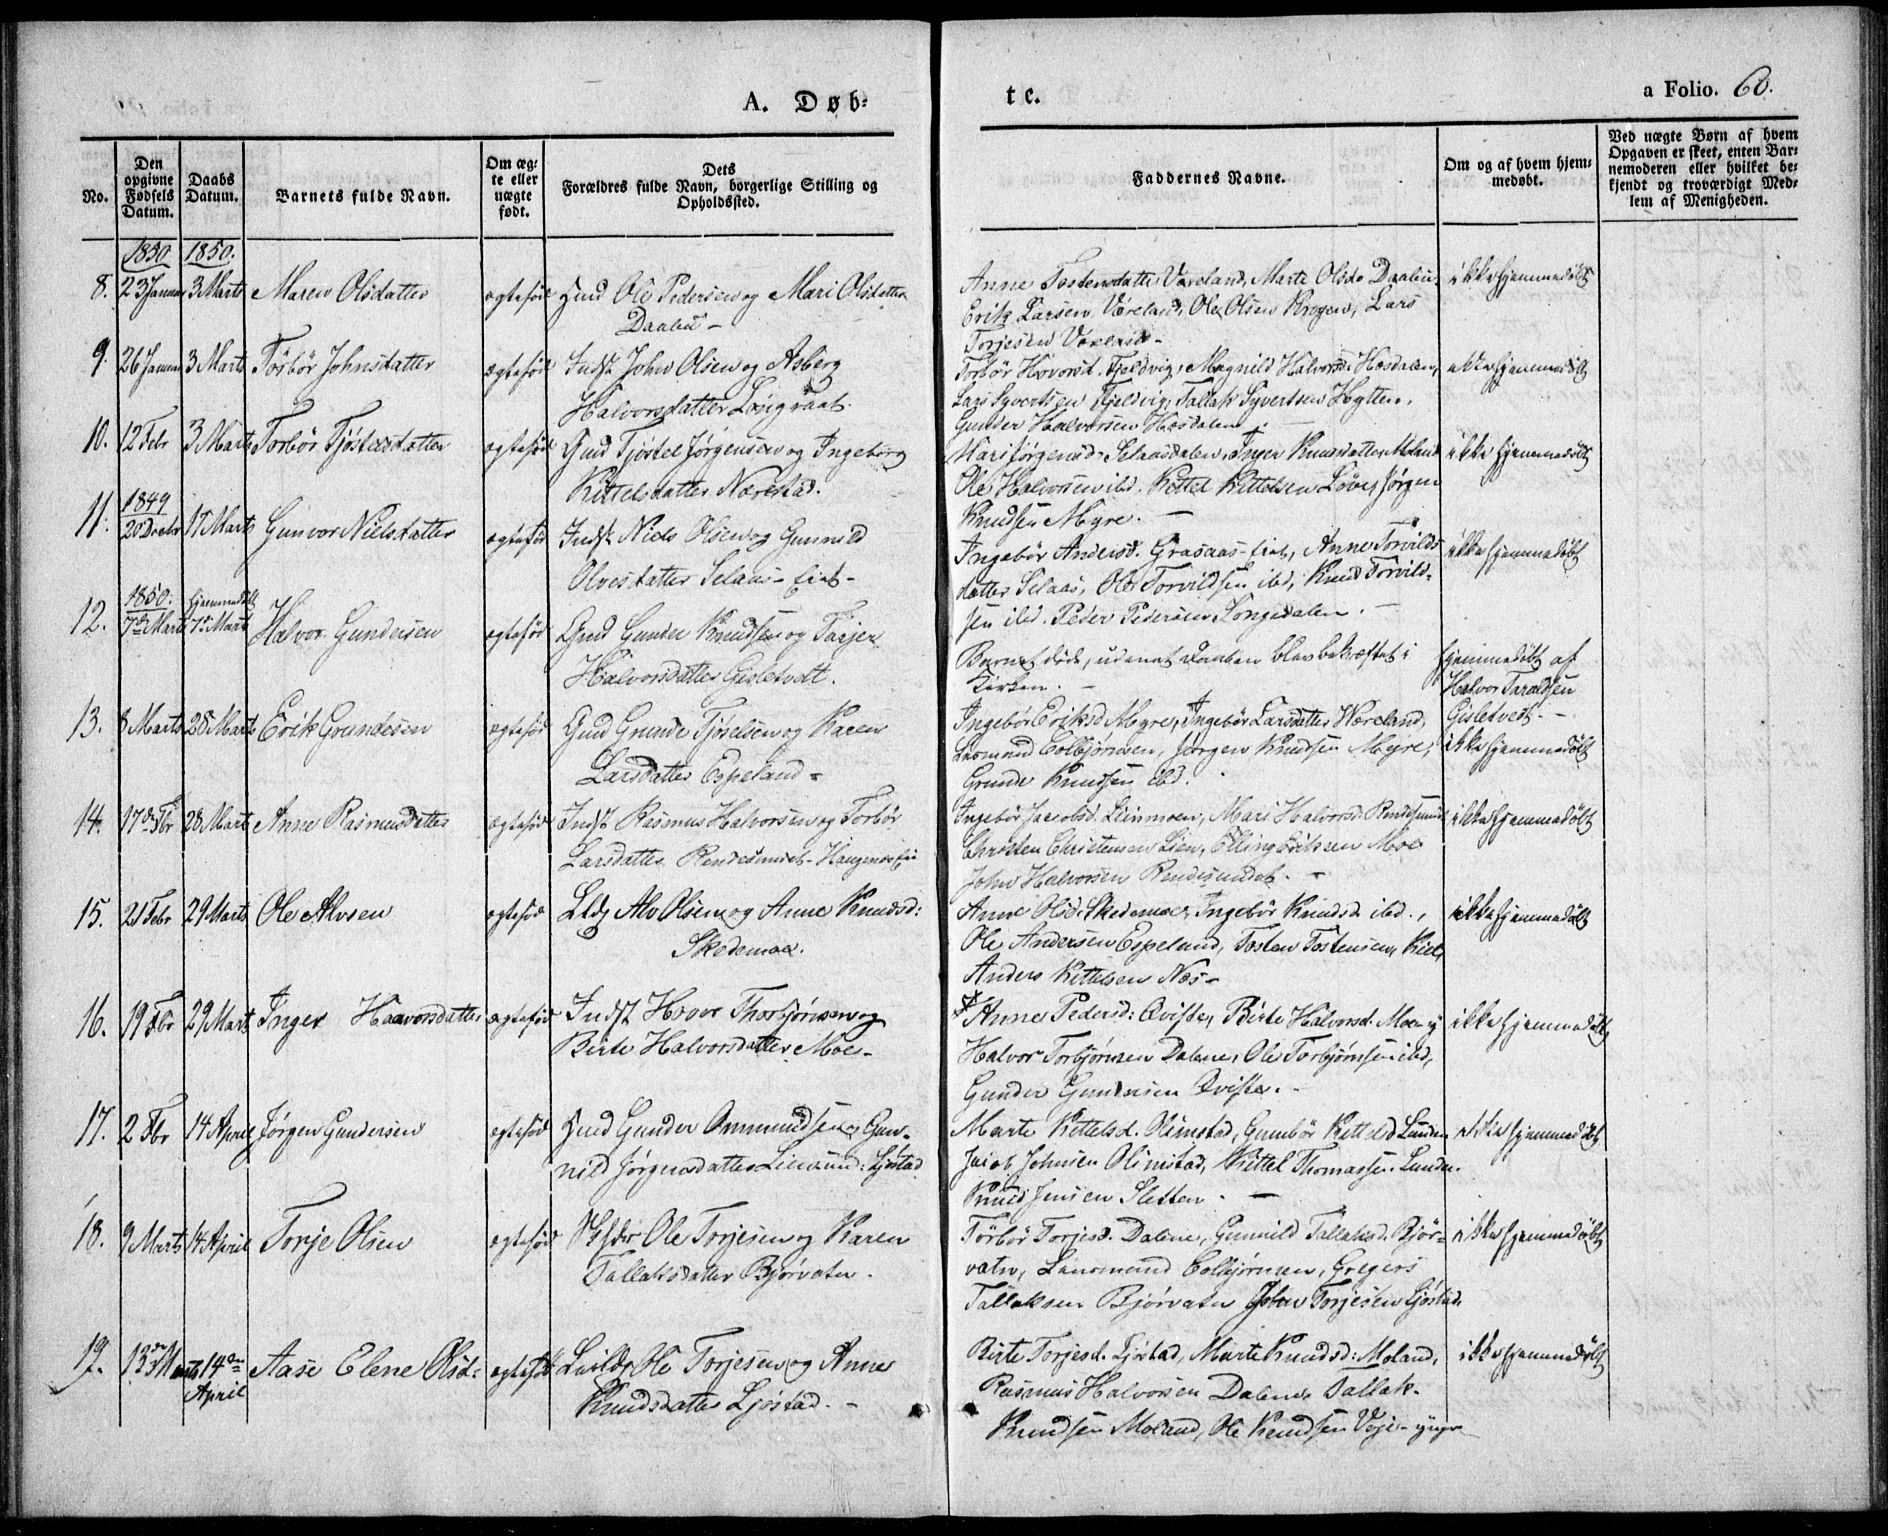 A. Døb-
te.
a Folio. 60.
No.
Den opgivne Fødsels Datum.
Daabs Datum.
Barnets fulde Navn.
Om æg-
te eller
nægte
født.
Dets
Forældres fulde Navn, borgerlige Stilling og
Opholdssted.
Faddernes Navne.
Om og af hvem hjem-
medøbt.
Ved nægte Børn af hvem
Opgaven er skeet, enten Bar-
nemoderen eller hvilket be-
kjendt og troværdigt Med-
lem af Menigheden.
1850 1850.
8. 23 Januar 3 Marts Maren Olsdatter ægtefød Huusmd Ole Pedersen og Mari Olsdatter
Daalen -
Anne Tostensdatter Væreland, Marte Olsdr Daalen,
Erik Larsen Væreland, Ole Olsen Krogen, Lars
Torjesen Væreland -
ikke hjemmedøbt
9. 26 Januar 3 Marts Torbør Johnsdatter ægtefød Indst John Olsen og Asberg
Halvorsdatter Longraat.
Torbør Hovorsd. Fjeldvig, Magnild Halvorsd. Hæsdalen,
Lars Syvertsen Fjeldvig, Tallak Syvertsen Hytten,
Gunder Halvorsen Hæsdalen.
ikke hjemmedøbt
10. 12 Febr 3 Marts Torbør Tjøstelsdatter ægtefød Gmd Tjøstel Jørgensen og Ingeborg
Kittelsdatter Nærestad.
Mari Jørgensd. Selaasdalen, Inger Knudsdatter Moland
Ole Halvorsen ibd. Kittel Kittelsen Løve, Jørgen
Knudsen Myre. -
ikke hjemmedøbt
11. 1849
20 Decbr 17 Marts Gunvor Nielsdatter ægtefød Indst. Niels Olsen og Gunnild
Olvesdatter Selaas-Eiet -
Ingebør Andersd. Grasaas-Eiet, Anne Torvilds-
datter Selaas, Ole Torvildsen ibd, Knud Torvild-
sen ibd. Peder Pedersen Songedalen. -
ikke hjemmedøbt
12. 1850.
7de Marts
hjemmedøbt
7de Marts Halvor Gundersen ægtefød Gmd Gunder Knudsen og Torjer
Halvorsdatter Gisletvedt.
Barnet døde, udenat Daaben blev bekræftet i
Kirken. -
hjemmedøbt af
Halvor Taraldsen
Gisletvedt. -
13. 8 Marts 28 Marts Erik Grundesen ægtefød Gmd Grunde Tjøselsen og Karen
Larsdatter Espeland -
Ingebør Eriksd Myre, Ingebør Larsdatter Væreland,
Colbjørnsen, Jørgen Knudsen Myre,
Grunde Knudsen ibd.
ikke hjemmedøbt
14. 17de Fbr 28 Marts Anne Rasmusdatter ægtefød Indst Rasmus Halvorsen og Torbør
Larsdatter Rendesundet-Haugenes Eie
Ingebør Jacobsd. Leinmoen, Mari Halvorsd. Rendesund
Christen Christensen Lien, Elling Eriksen Moe
John Halvorsen Rendesundet. -
ikke hjemmedøbt
15. 21 Febr 29 Marts Ole Alvsen ægtefød Ldg Alv Olsen og Anne Knudsd:
Skedemoe.
Anne Olsd: Skedemoe, Ingebør Knudsd ibd.,
Ole Andersen Espeland, Tosten Tostensen,
Anders Kittelsen Næs -
ikke hjemmedøbt
16. 19 Fbr 29 Marts Inger Haavorsdatter ægtefød Indst Hovor Thorbjørnsen og
Birte Halvorsdatter Moe -
Anne Pedersd: Qviste, Birte Halvorsd. Moen
Halvor Torbjørnsen Dalene, Ole Torbjørnsen ibd,
Gunder Gundersen Qviste. -
ikke hjemmedøbt
17. 2 Fbr 14 April Jørgen Gundersen ægtefød Huusmd Gunder Ommundsen og Gun-
nild Jørgensdatter Ljøstad
Marte Kittelsd. Olimstad, Gunbør Kittelsd Lunden
Jacob Johnsen Olimstad, Kittel Thomassen Lunden
Knud Jensen Sletten. -
ikke hjemmedøbt
18. 9 Marts 14 April Torje Olsen ægtefød Ole Torjesen og Karen
Tallaksdatter Bjørvatn.
Torbør Torjesd. Dalene, Gunnild Tallaksd. Bjør-
vatn, Colbjørnsen, Gregers
Tallaksen Bjørvatn John Torjesen Ljøstad.
ikke hjemmedøbt
19. 13de Marts 14de
April Aase Elene Olsd: ægtefød Ole Torjesen og Anne
Knudsdatter Ljøstad. -
Birte Torjesd. Ljøstad, Marte Knudsd: Moland,
Rasmus Halvorsen Dalene Tallak
Knudsen Moland, Ole Knudsen
ikke hjemmedøbt